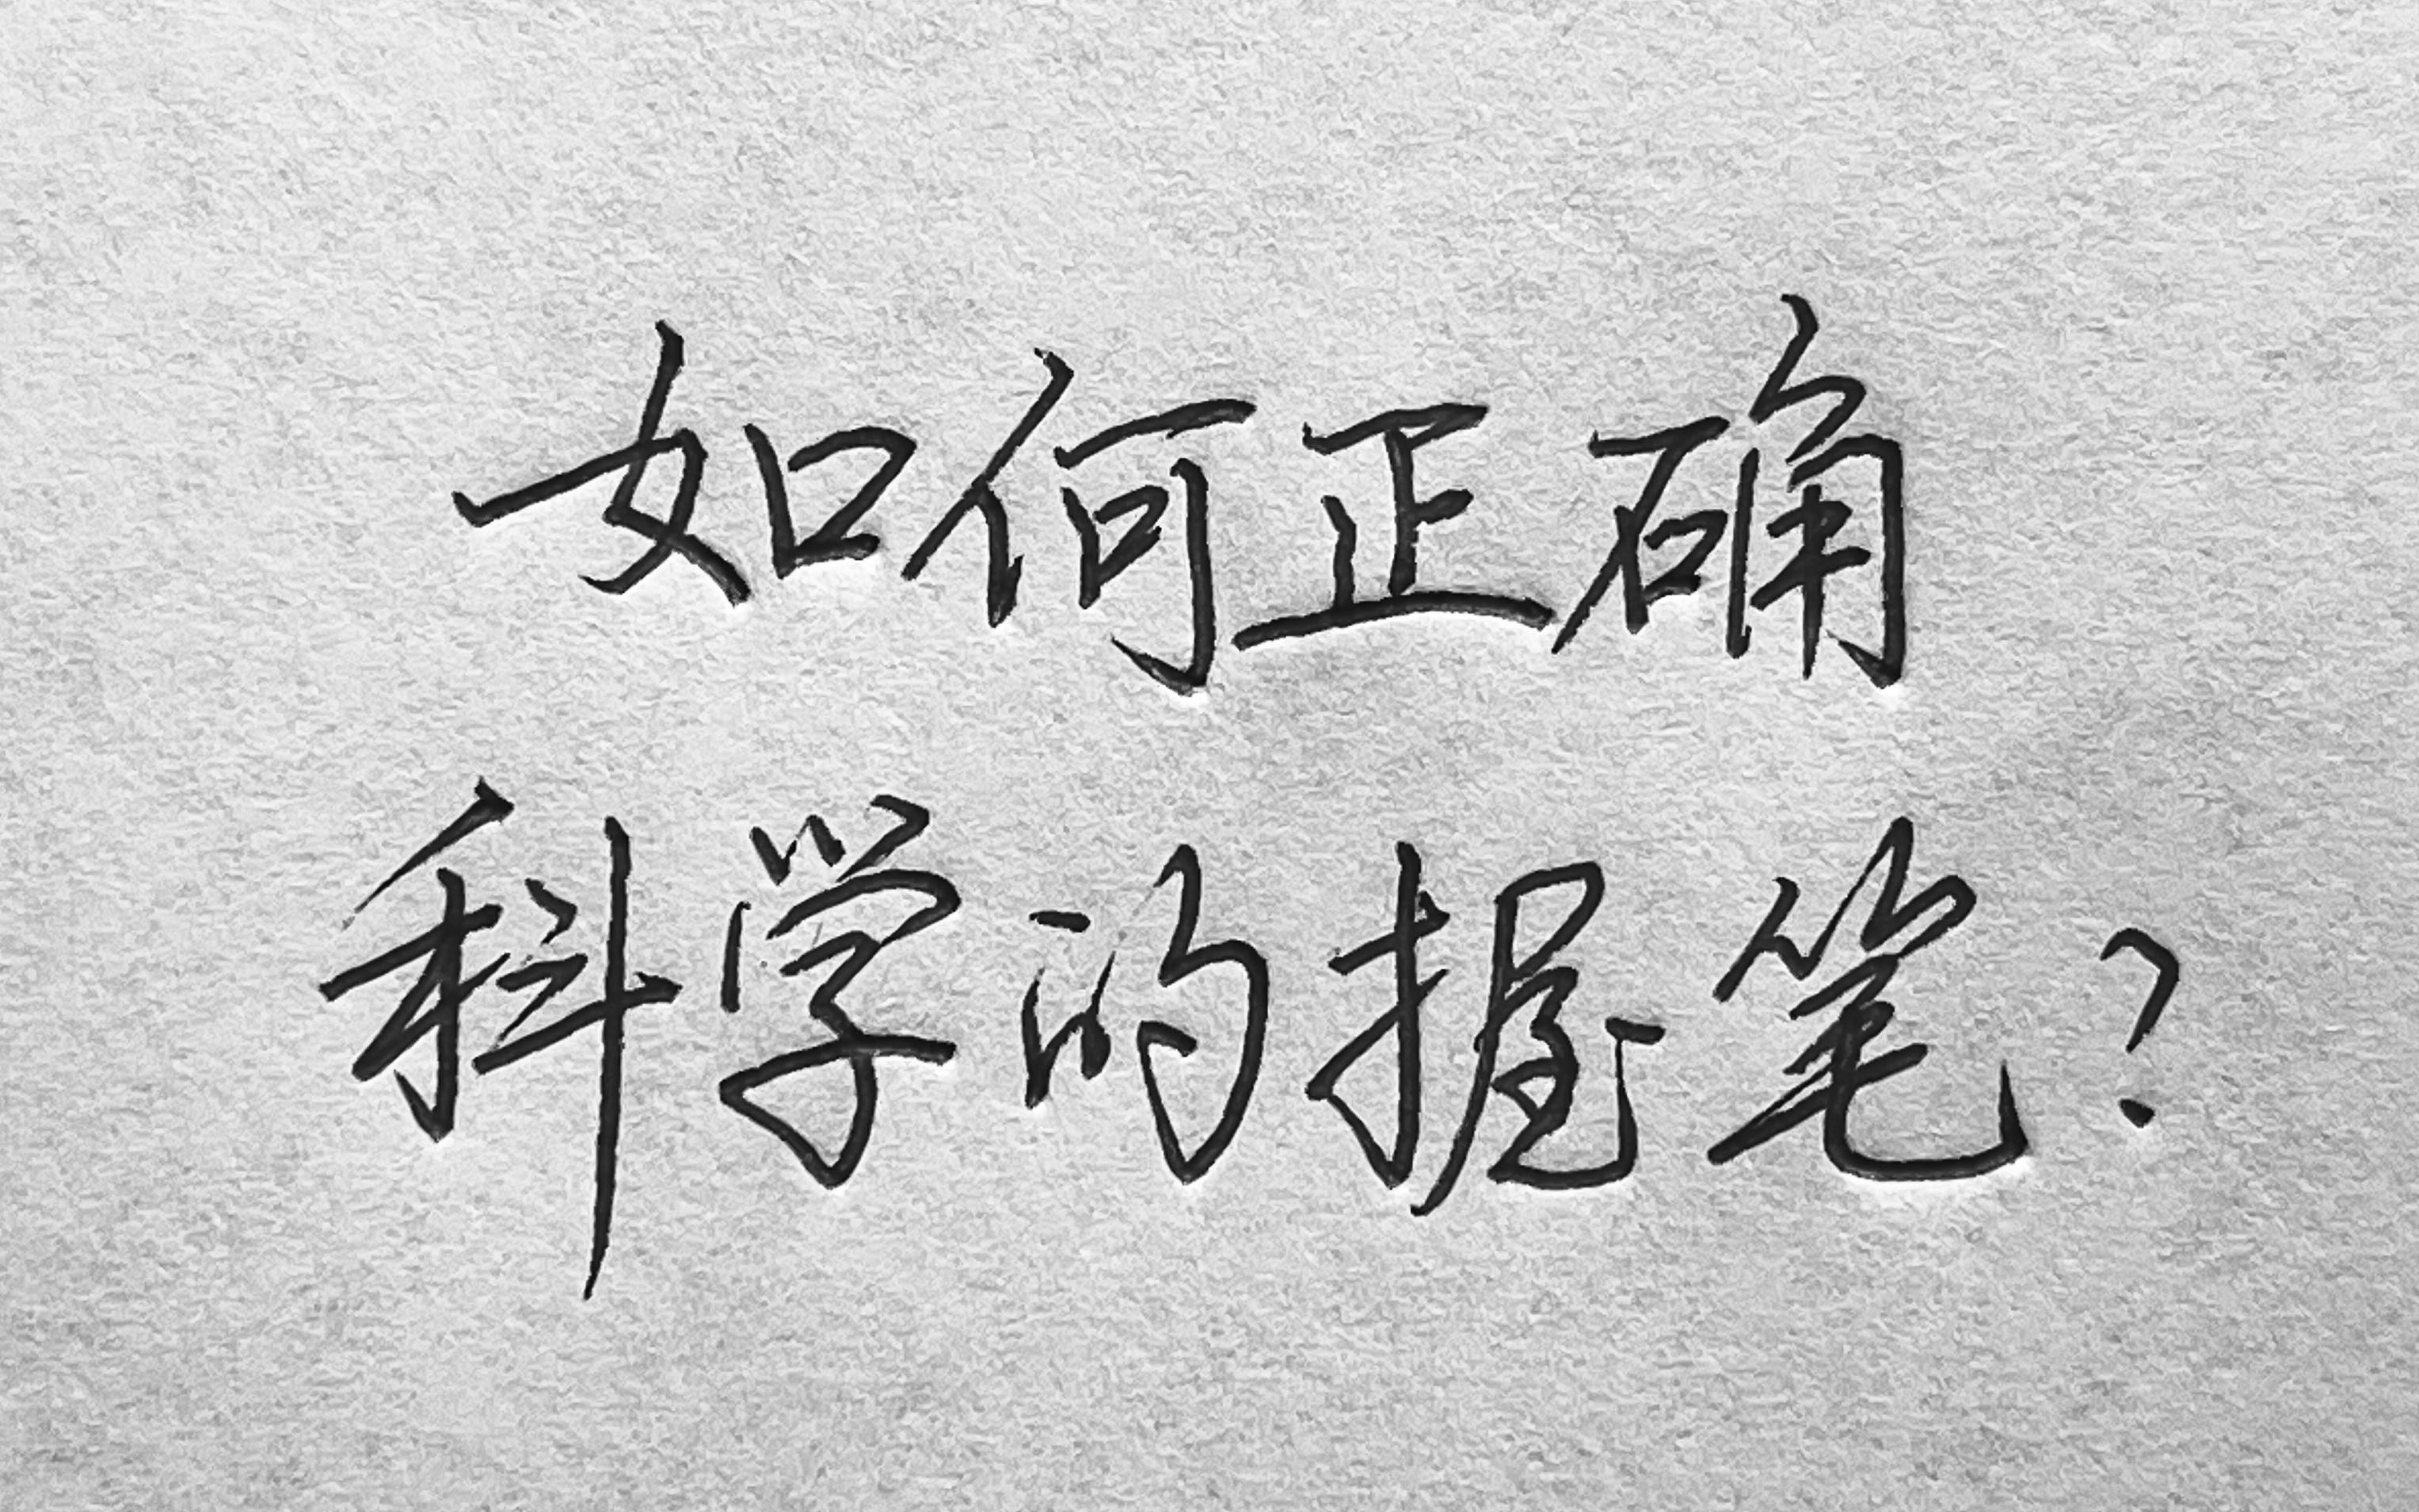 如何正确
科学的握笔?